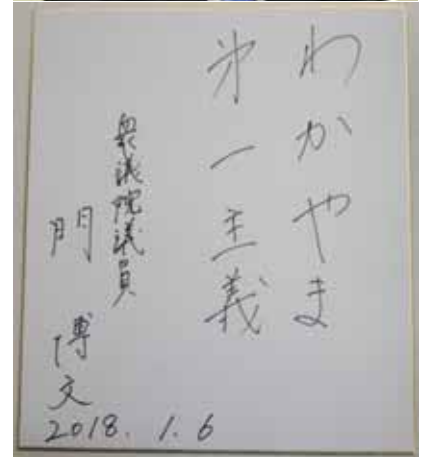 わかやま
第一主義
衆議院議員
門博文
2018.1.6